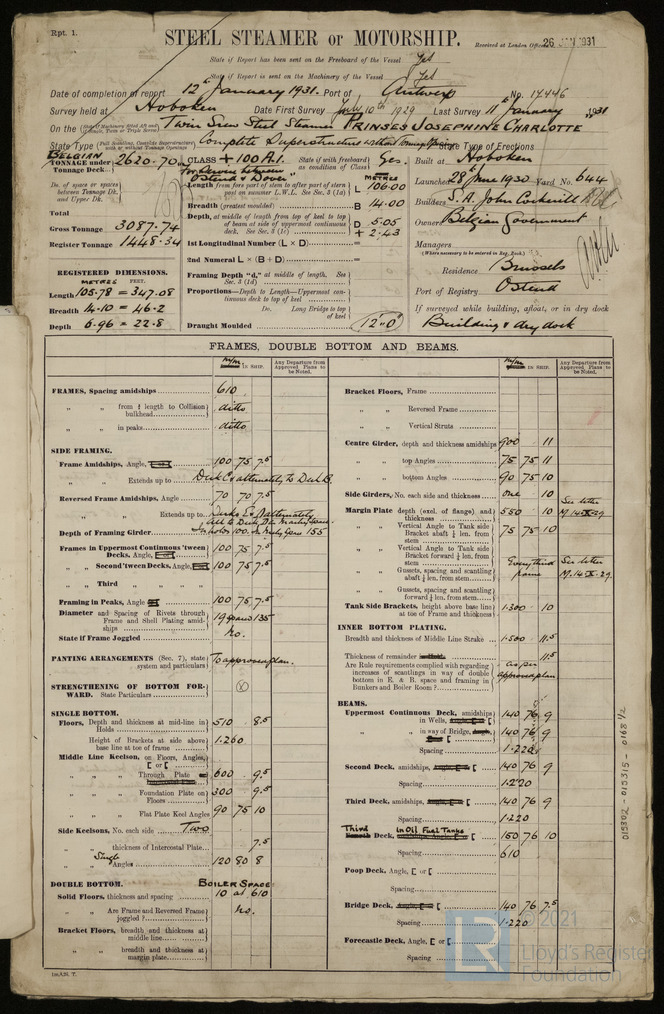 Rpt. 1.
STEEL STEAMER OR MOTORSHIP.
Received at London Office 26 JAN 1931
State if Report has been sent on the Freeboard of the Vessel Yes
State if Report is sent on the Machinery of the Vessel Yes
Date of completion of report 12th January 1931. Port of Antwerp No. 17446
Survey held at Hoboken Date First Survey July 10th 1929 Last Survey 11th January 1931
On the Twin Screw Steel Steamer PRINSES JOSEPHINE CHARLOTTE
State Type Complete Superstructure without Tonnage Openings State Type of Erections
BELGIAN
TONNAGE under Tonnage Deck 2620.70
Do. of space or spaces between Tonnage Dk. and Upper Dk.
Total
Gross Tonnage 3087.74
Register Tonnage 1448.34
REGISTERED DIMENSIONS.
METRES FEET.
Length 105.78 = 347.08
Breadth 14.10 = 46.2
Depth 6.96 = 22.8
CLASS +100A1. State if with freeboard as condition of Class Yes.
For Service between Ostend & Dover
METRES
Length from fore part of stem to after part of stern post on summer L.W.L. See Sec. 3 (1a) L 106.00
Breadth (greatest moulded) B 14.00
Depth, at middle of length from top of keel to top of beam at side of uppermost continuous deck. See Sec. 3 (1c) D 5.05 + 2.43
1st Longitudinal Number (L × D) =
2nd Numeral L × (B + D) =
Framing Depth "d," at middle of length. See Sec. 3 (1d)
Proportions—Depth to Length—Uppermost continuous deck to top of keel
Do. Long Bridge to top of keel
Draught Moulded 12'.0"
Built at Hoboken
Launched 28th June 1930 Yard No. 644
Builders S. A. John Cockerill
Owners Belgian Government
Managers
(Where necessary to be entered in Reg. Book.)
Residence Brussels
Port of Registry Ostend
If surveyed while building, afloat, or in dry dock
Building & dry dock
FRAMES, DOUBLE BOTTOM AND BEAMS.
m/m IN SHIP.
Any Departure from Approved Plans to be Noted.
FRAMES, Spacing amidships 610
" " from ⅕ length to Collision bulkhead ditto
" " in peaks ditto
SIDE FRAMING.
Frame Amidships, Angle, 100 75 7.5
" " Extends up to Deck C & alternately to Deck B.
Reversed Frame Amidships, Angle 70 70 7.5
" " Extends up to
Depth of Framing Girder
Frames in Uppermost Continuous 'tween Decks, Angle, 100 75 7.5
" " Second 'tween Decks, Angle, 100 75 7.5
" " Third " " "
Framing in Peaks, Angle 100 75 7.5
Diameter and Spacing of Rivets through Frame and Shell Plating amidships 19 spaced 135
State if Frame Joggled no.
PANTING ARRANGEMENTS (Sec. 7), state system and particulars To approved plan.
STRENGTHENING OF BOTTOM FORWARD. State Particulars
SINGLE BOTTOM.
Floors, Depth and thickness at mid-line in Holds 510 8.5
Height of Brackets at side above base line at toe of frame 1.260
Middle Line Keelson, on Floors, Angles, [ or [
" " Through Plate 600 9.5
" " Foundation Plate on Floors 300 9.5
" " Flat Plate Keel Angles 90 75 10
Side Keelsons, No. each side Two
" " thickness of Intercostal Plate 7.5
" " Single Angles 120 80 8
DOUBLE BOTTOM. BOILER SPACE
Solid Floors, thickness and spacing 10 at 610
" " Are Frame and Reversed Frame joggled? no.
Bracket Floors, breadth and thickness at middle line
" " breadth and thickness at margin plate
m/m IN SHIP.
Any Departure from Approved Plans to be Noted.
Bracket Floors, Frame
" " Reversed Frame
" " Vertical Struts
Centre Girder, depth and thickness amidships 900 11
" " top Angles 75 75 11
" " bottom Angles 90 75 10
Side Girders, No. each side and thickness one 10
Margin Plate depth (excl. of flange) and thickness 550 10 See letter M.14.X.29
" " Vertical Angle to Tank side Bracket abaft ¼ len. from stem 75 75 10
" " Vertical Angle to Tank side Bracket forward ¼ len. from stem
" " Gussets, spacing and scantling abaft ¼ len. from stem Every third frame See letter M.14.X.29.
" " Gussets, spacing and scantling forward ¼ len. from stem
Tank Side Brackets, height above base line at toe of Frame and thickness 1.300 10
INNER BOTTOM PLATING.
Breadth and thickness of Middle Line Strake 1.500 11.5
Thickness of remainder 11.5
Are Rule requirements complied with regarding increases of scantlings in way of double bottom in E. & R. space and framing in Bunkers and Boiler Room? as per approved plan
BEAMS.
Uppermost Continuous Deck, amidships in Wells, 140 76 9
" " in way of Bridge, 140 76 9
Spacing 1.220
Second Deck, amidships, 140 76 9
Spacing 1.220
Third Deck, amidships, 140 76 9
Spacing 1.220
Third Deck, in Oil Fuel Tanks 150 76 10
Spacing 610
Poop Deck, Angle, [ or [
Spacing
Bridge Deck, 140 76 7.5
Spacing 1.220
Forecastle Deck, Angle, [ or [
Spacing
015802 - 015315 - 0168 1/2
© 2021
LR
Lloyd's Register
Foundation